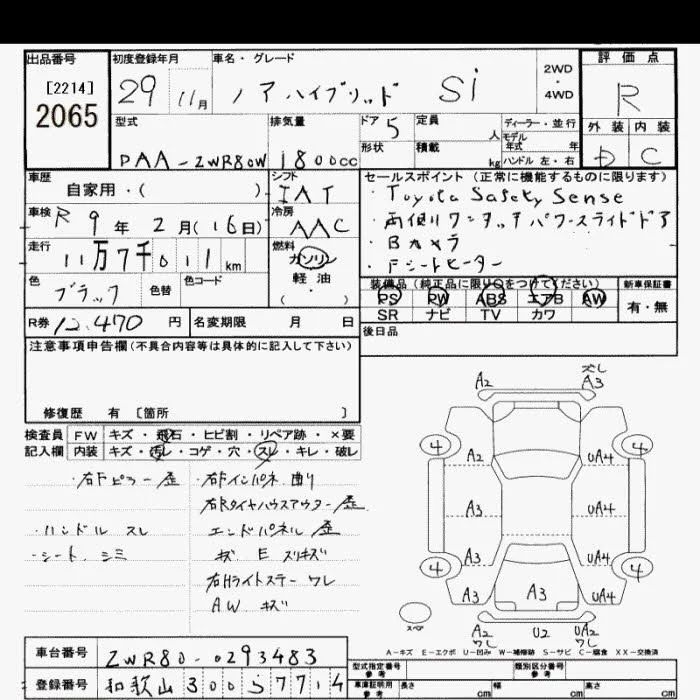 出品番号 初度登録年月 車名・グレード 2WD・4WD 評価点
[2214]
2065
29 11月 ノアハイブリッド Si R
型式 排気量 ドア 5 定員 人 ディーラー・並行 外装 内装
モデル年式 年式
DAA-ZWR80W 1800cc 形状 積載 kg ハンドル 左・右 D C
車歴 自家用・( ) シフト IAT セールスポイント (正常に機能するものに限ります)
・Toyota Safety Sense
車検 R 9 年 2 月 (16日) 冷房 AAC ・両側ワンタッチパワースライドドア
・Bカメラ
走行 11万7千011 km 燃料 ガソリン・軽油・( ) ・Fシートヒーター
色 ブラック 色替 色コード 装備品 (純正品に限りQをつけてください) 新車保証書
PS PW ABS エアB AW 有・無
SR ナビ TV カワ
R券 12,470 円 名変期限 月 日 後日品
注意事項申告欄 (不具合内容等は具体的に記入して下さい)
修復歴 有 〔箇所 〕
検査員記入欄 FW キズ・飛石・ヒビ割・リペア跡・×要
内装 キズ・汚レ・コゲ・穴・スレ・キレ・破レ
右Fピラー 歪 右Fインパネ 曲り
右Rタイヤハウスアウター 歪
・ハンドル スレ エンドパネル 歪
・シート シミ キズ E スリキズ
右Hライトステー ワレ
AW キズ
A2 ズレ A3
4 4
A2 UA4
A3 UA4
A3 UA4
4 4
A3 A3 UA4
スペア
A2 ワレ U2 UA2 ワレ
A-キズ E-エクボ U-凹み W-補修跡 S-サビ C-腐食 XX-交換済
車台番号 ZWR80-0293483 型式指定番号 参考 類別区分番号 参考
登録番号 和歌山 300 5 7714 車庫証明用 参考 長さ cm 幅 cm 高さ cm